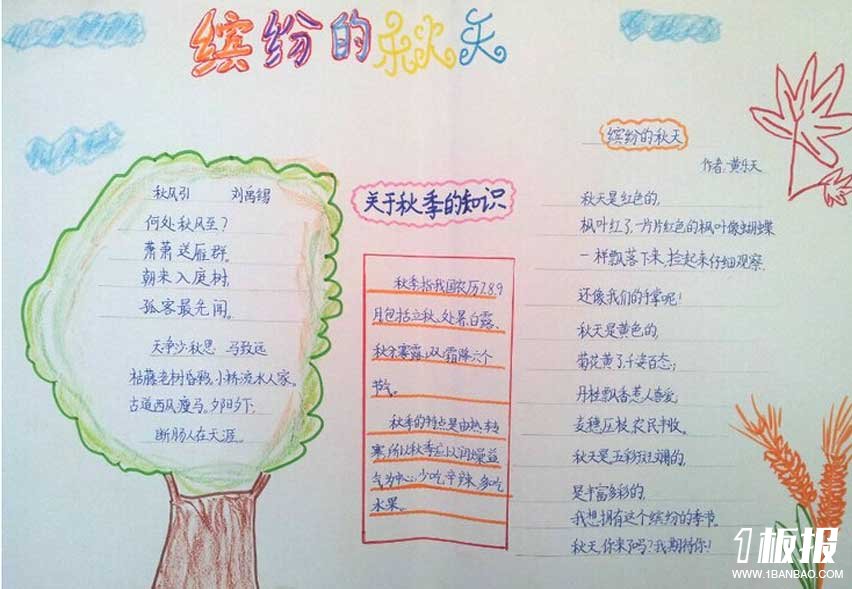 缤纷的秋天
秋风引 刘禹锡
何处秋风至？
萧萧送雁群。
朝来入庭树，
孤客最先闻。
天净沙秋思 马致远
枯藤老树昏鸦，小桥流水人家。
古道西风瘦马。夕阳夕下，
断肠人在天涯。
关于秋季的知识
秋季指我国农历7.8.9
月包括立秋、处暑、白露、
秋分寒露，以及霜降六个
节气。
秋季的特点是由热转
寒，所以秋季应以润燥益
气为中心，少吃辛辣，多吃
水果。
缤纷的秋天
作者：黄乐天
秋天是红色的，
枫叶红了，一片片红色的枫叶像蝴蝶
一样飘落下来，捡起来仔细观察，
还像我们的手掌呢！
秋天是黄色的，
菊花黄了，千姿百态；
丹桂飘香惹人喜爱；
麦穗压枝，农民丰收。
秋天是五彩斑斓的，
是丰富多彩的，
我想拥有这个缤纷的季节。
秋天，你来了吗？我期待你！
1板报
WWW.1BANBAO.COM